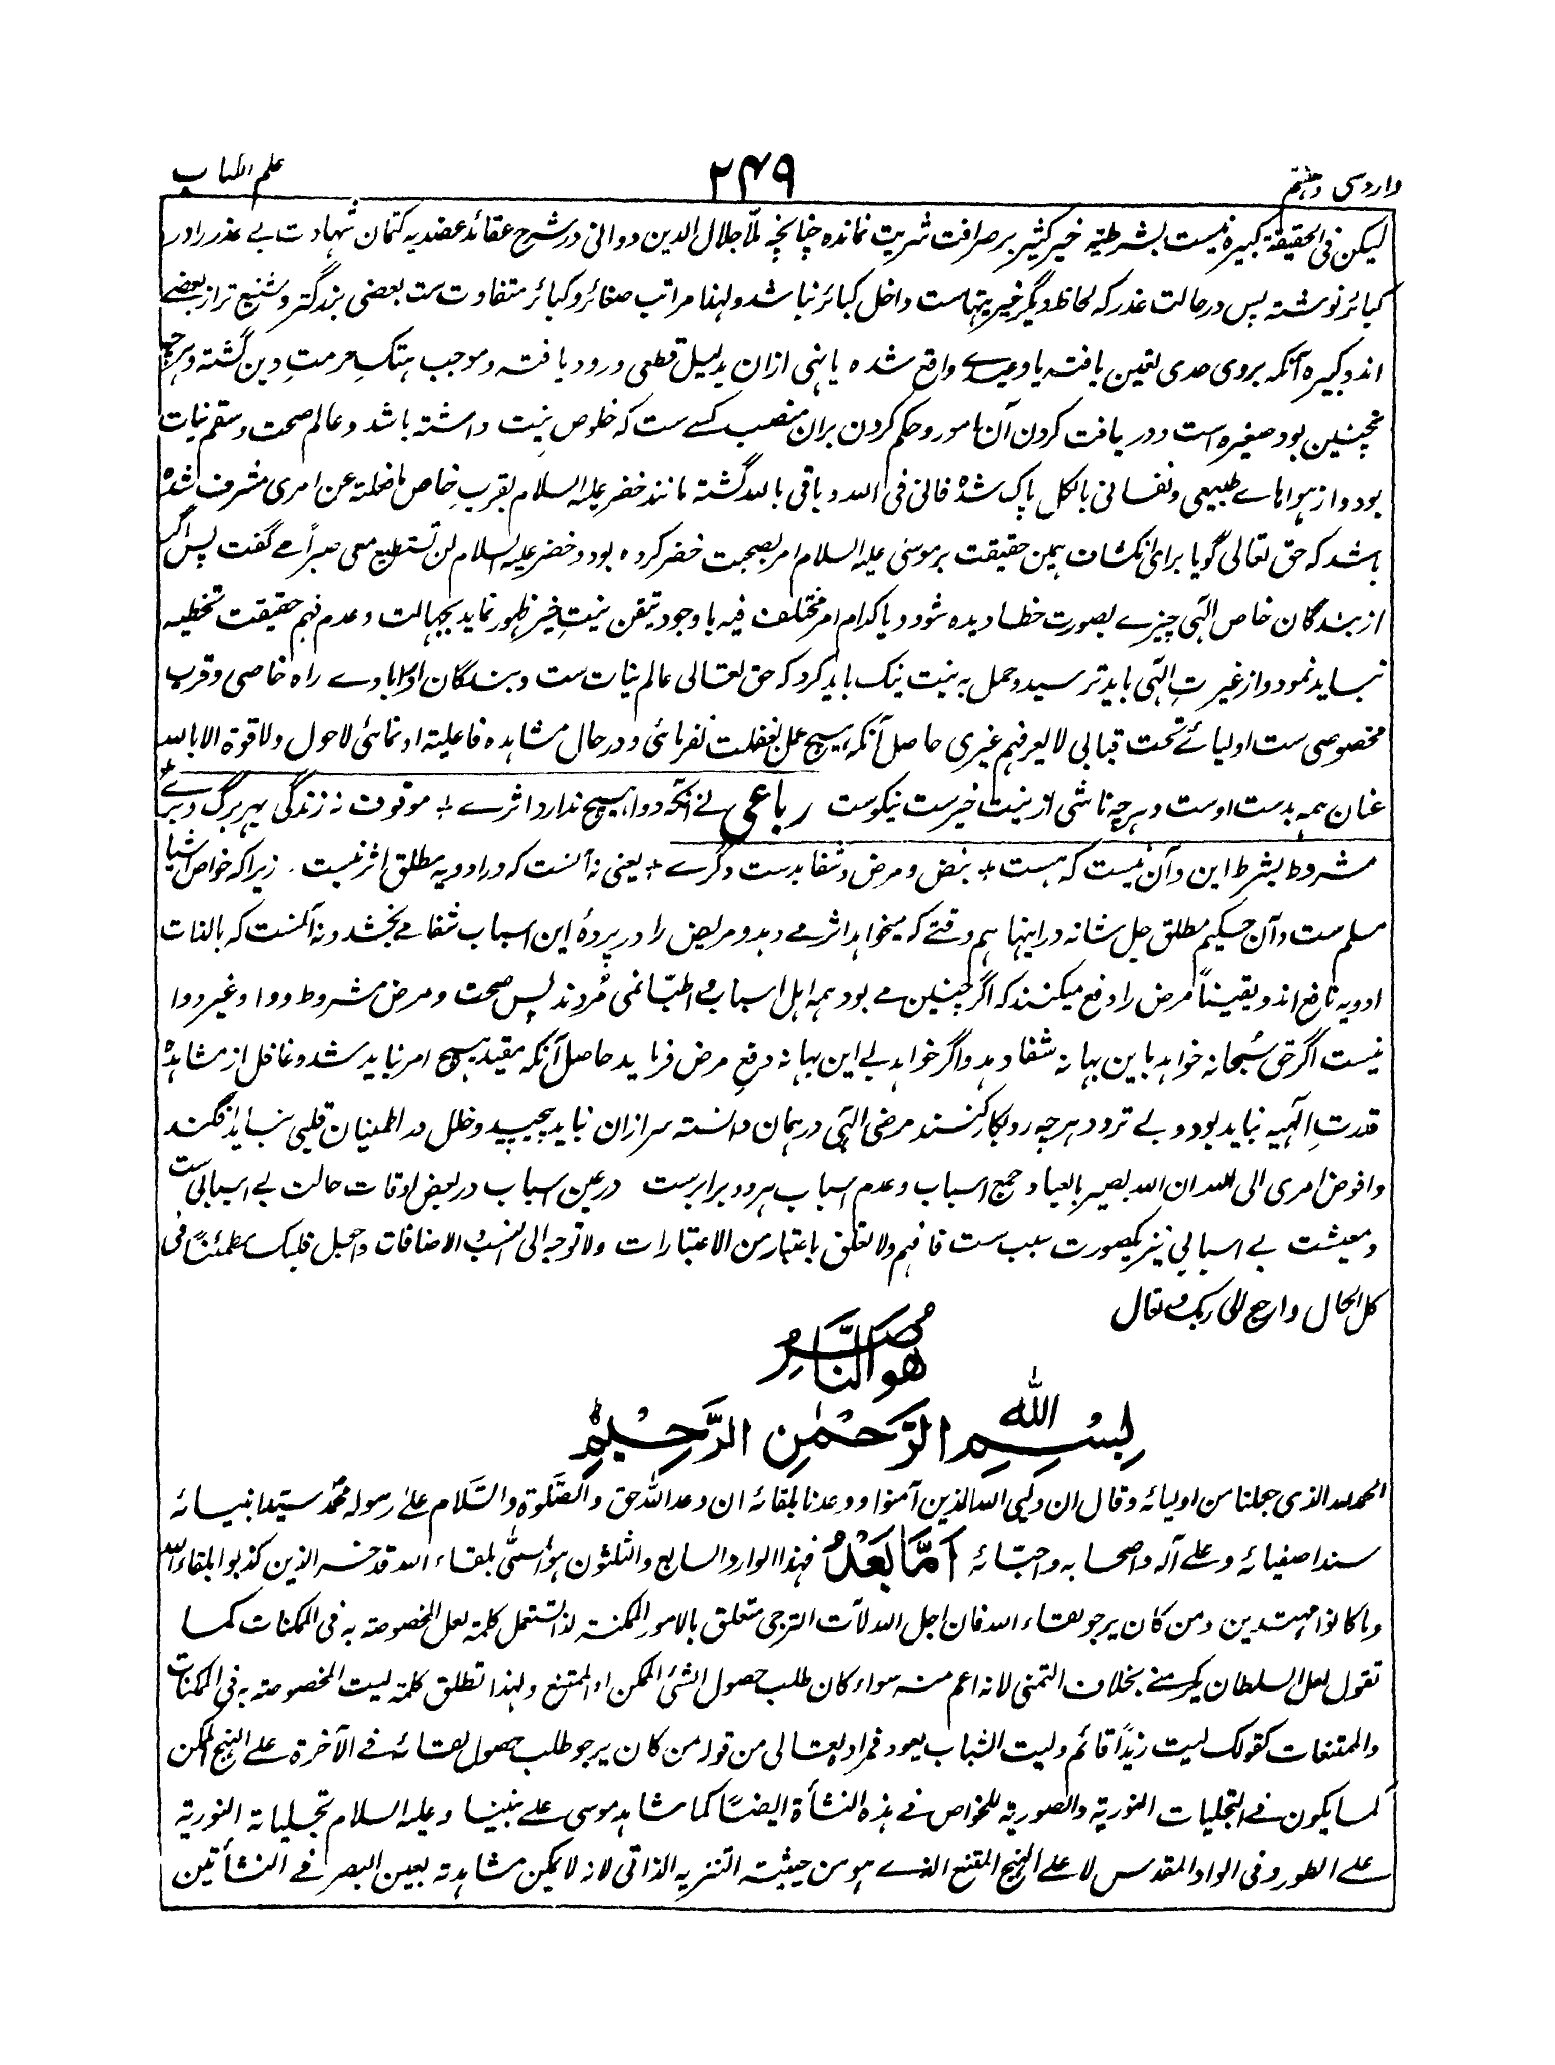 وارد سی و هفتم ۲۴۹ علم الکتاب
لیکن فی الحقیقة کبیره نیست بشرطیکه خیر کثیر بر صرافت شریت نمانده چنانچه ملا جلال الدین دوانی در شرح عقائد عضدیه کتمان شهادت بے عذر را در
کبائر نوشته پس در حالت عذر که لحاظ دیگر خیریتهاست داخل کبائر نباشد و لهذا مراتب صغائر و کبائر متفاوت ست بعضی بزرگتر و شنیع تر از بعضے
اند و کبیره آنکه بر وی حدی تعین یافته یا وعیدے واقع شده یا نهی ازان بدلیل قطعی ورود یافته و موجب هتک حرمتِ دین گشته و هرچه
همچنین بود صغیره است و دریافت کردن آن امور و حکم کردن بران منصب کسے ست که خلوص نیت داشته باشد و عالم صحت و سقم نیات
بود و از هواهاے طبیعی و نفسانی بالکل پاک شده فانی فی الله و باقی بالله گشته مانند خضر علیه السلام بقربِ خاص مافعلته عن امری مشرف شده
باشد که حق تعالی گویا برای انکشاف همین حقیقت بر موسی علیه السلام امر بصحبت خضر کرده بود و خضر علیه السلام لن تستطیع معی صبراً مے گفت پس اگر
از بندگان خاص الٰهی چیزے بصورت خطا دیده شود و یا کدام امر مختلف فیه باوجود تیقن نیتِ خیر ظهور نماید بجهالت و عدم فهم حقیقت تخطیه
نباید نمود و از غیرتِ الٰهی باید ترسید و حمل به نیت نیک باید کرد که حق تعالی عالم نیات ست و بندگان او را باوے راه خاصی و قرب
مخصوصی ست اولیائے تحت قبائی لا یعرفهم غیری حاصل آنکه هیچ عمل بغفلت نفرمائی و در حال مشاهده فاعلیة او نمائی لاحول ولا قوة الا بالله
عنان همه بدست اوست و هرچه ناشی از نیت خیرست نیکوست رباعی نے آنکه دوا هیچ ندارد اثرے + موقوف نه زندگی بهر برگ و برے +
مشروط بشرط این و آن نیست که هست + نبض و مرض و شفا بدست دگرے + یعنی نه آنست که در ادویه مطلق اثر نیست . زیرا که خواص اشیا
مسلم ست و آن حکیم مطلق جل شانه در اینها هم وقتے که میخواهد اثر مے دهد و مریض را در پردهٔ این اسباب شفا مے بخشد و نه آنست که بالذات
ادویه نافع اند و یقیناً مرض را دفع میکنند که اگر چنین مے بود همه اهل اسباب و اطبّا نمی مُردند پس صحت و مرض مشروط دوا و غیر دوا
نیست اگر حق سُبحانه خواهد باین بهانه شفا دهد و اگر خواهد بے این بهانه دفعِ مرض فرماید حاصل آنکه مقید هیچ امر نباید شد و غافل از مشاهدهٔ
قدرتِ الٰهیه نباید بود و بے تردد هرچه رو بکار کنند مرضی الٰهی در همان دانسته سر ازان نباید پیچید و خلل در اطمینان قلبی نباید افگند
وافوض امری الی الله ان الله بصیر بالعباد جمع اسباب و عدم اسباب هر دو برابرست در عین اسباب در بعض اوقات حالت بے اسبابی ست
و معیشت بے اسبابی نیز بکصورت سبب ست فافهم ولا تعلق باعتبار من الاعتبارات ولا توجه الی النسب والاضافات واجعل قلبک مطمئناً فی
کل الحال وارجع الی ربک متعال
هُوَ النَّاصِرُ
بِسْمِ اللهِ الرَّحْمٰنِ الرَّحِیْمِ
الحمد لله الذی جعلنا من اولیائه وقال ان ولی الله الذین آمنوا ووعدنا بلقائه ان وعد الله حق والصَّلوة والسَّلام علیٰ رسوله محمّد سیّد انبیائه
سند اصفیائه وعلے آله واصحابه واحبّائه اَمَّا بَعْدُ فهذا الوارد السابع والثلثون هو المسمّٰی بلقاء الله قد خسر الذین کذبوا بلقاء الله
وما کانوا مهتدین ومن کان یرجو لقاء الله فان اجل الله لآت الترجی متعلق بالامور الممکنة لذا تستعمل کلمة لعل المخصوصة به فی الممکنات کما
تقول لعل السلطان یکرمنے بخلاف التمنی لانه اعم منه سواء کان طلب حصول الشئ الممکن او الممتنع ولهذا تطلق کلمة لیت المخصوصة به فی الممکنات
والممتنعات کقولک لیت زیداً قائم ولیت الشباب یعود فمراده تعالی من قوله من کان یرجو طلب حصول لقائه فے الآخرة علے النهج الممکن
کما یکون فے التجلیات النوریة والصوریة للخواص فے هذه النشأة ایضاً کما شاهد موسی علے نبینا وعلیه السلام تجلیاته النوریة
علے الطور وفی الواد المقدس لا علے النهج الممتنع الذے هو من حیثیة التنزیه الذاتی لانه لا یمکن مشاهدته بعین البصر فے النشأتین